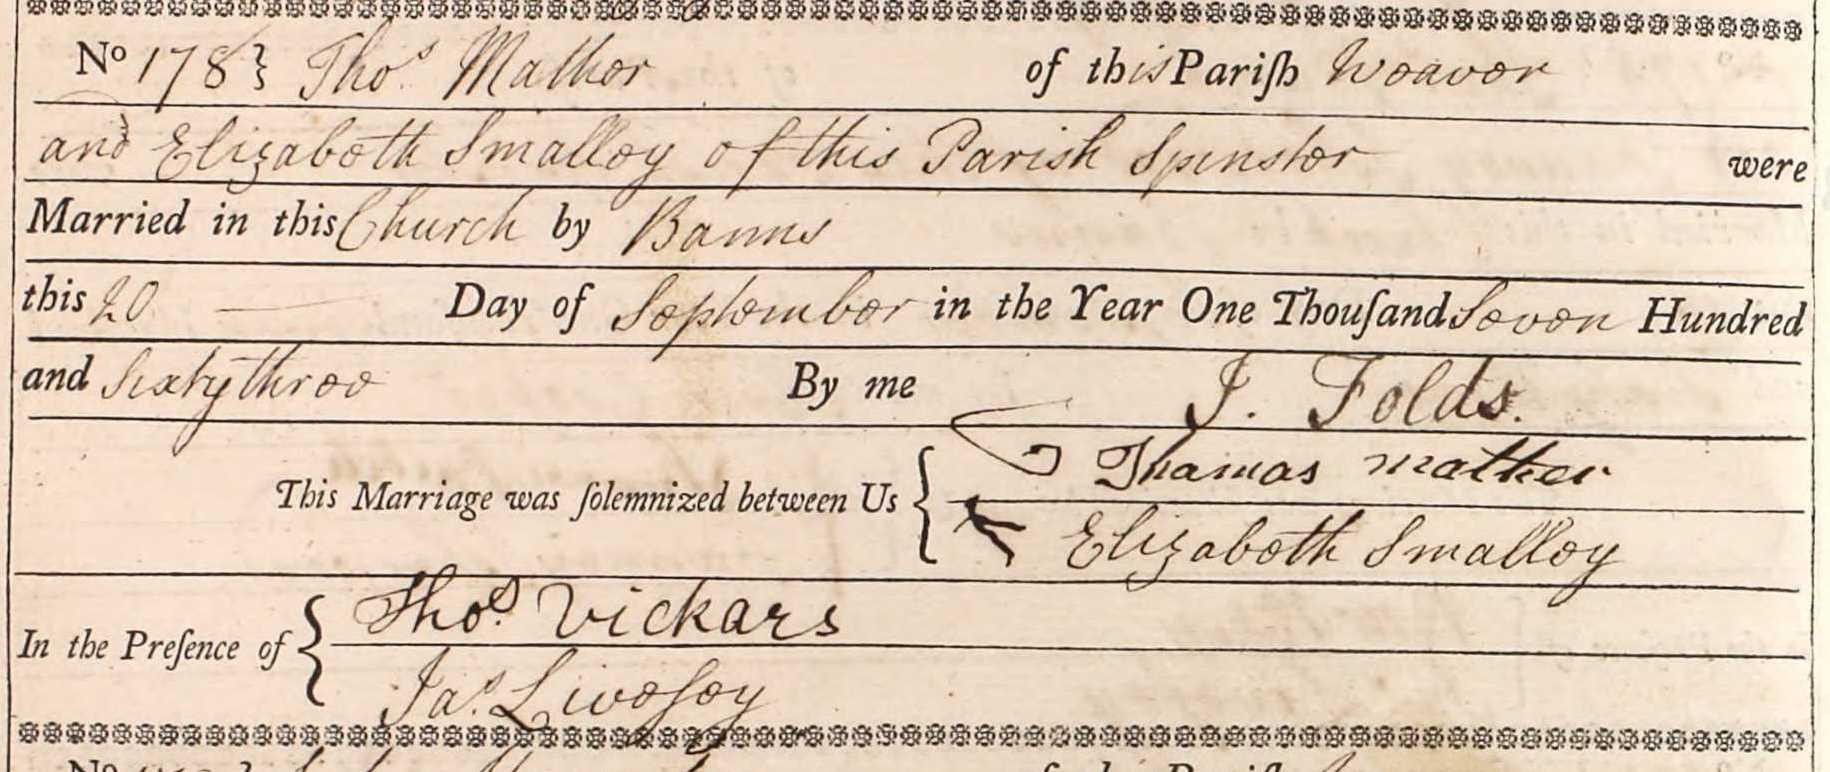 No 178} Thos. Mather of this Pariſh Weaver
and Elizabeth Smalley of this Parish Spinster were
Married in this Church by Banns
this 20 — Day of September in the Year One Thouſand Seven Hundred
and Sixty three By me J. Folds.
This Marriage was ſolemnized between Us { Thamas mather
Elizabeth Smalley
In the Preſence of { Thos. Vickars
Jas. Liveſey